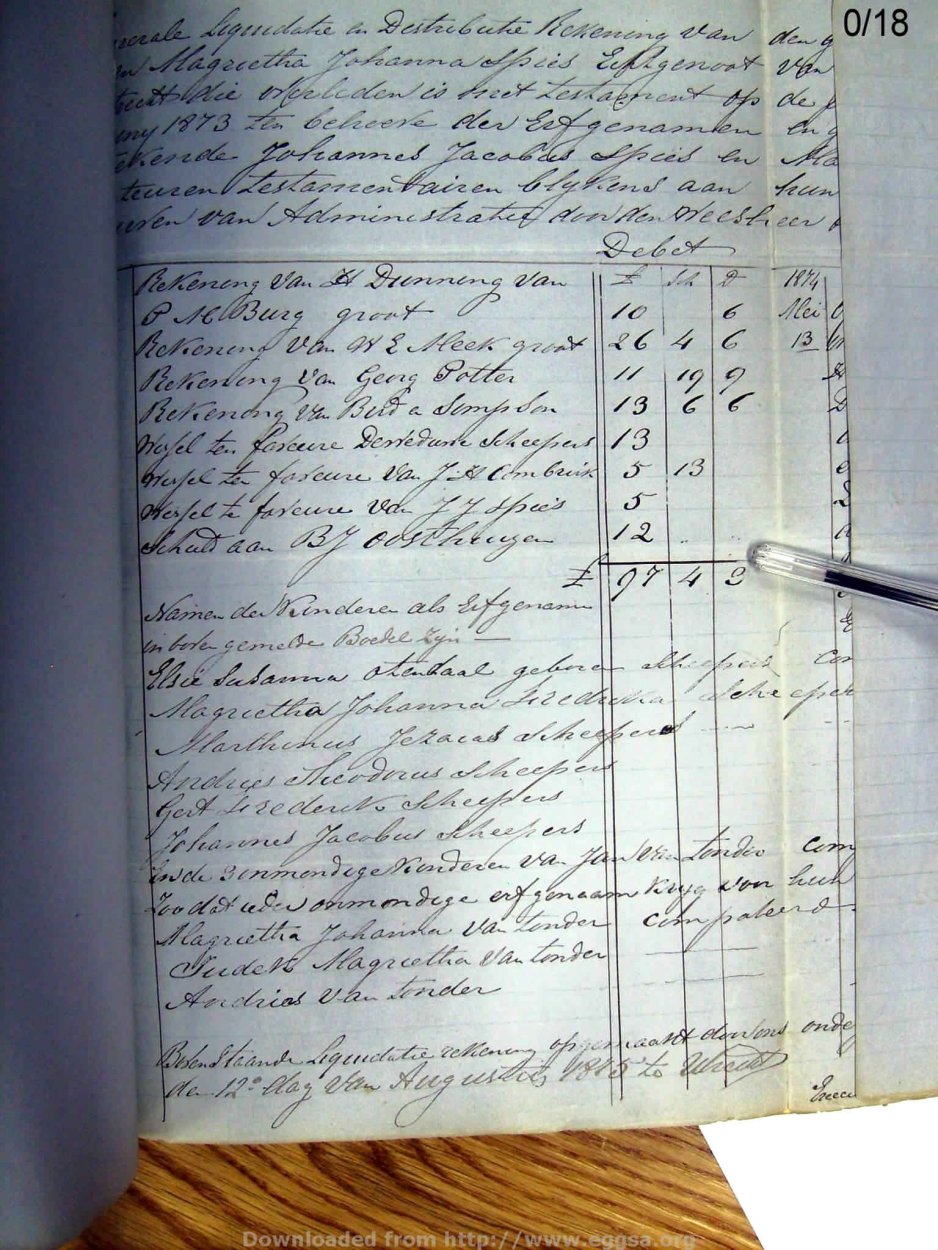 0/18
Liquidatie en Distributie Rekening van den
Magrietha Johanna Spies Echtgenoot van
die overleden is met testament op de
1873 ten behoeve der Erfgenamen en
Johannes Jacobus Spies en Ma
teuren Testamentairen blykens aan hun
van Administratie door den Weesheer
Debet
Rekening Van H Dunning van £ Sh D 1874
P M Burg groot 10 6 Mei
Rekening Van W E Meek groot 26 4 6 13
Rekening Van Georg Potter 11 19 9
Rekening Van Bird a Sompson 13 6 6
Wesel ten faveure Scheepers 13
Wesel ten faveure Van J. H Combrink 5 13
Wesel te faveure Van J J Spies 5
Schuld aan B J Oosthuyzen 12 " "
£ 97 4 3
Namen der Kinderen als Erfgenamen
in boven gemelde Boedel Zyn —
Elsie Susanna otendaal geboren Scheepers Com
Magrietha Johanna Fredrika Scheeper
Marthinus Jezacas Scheepers
Andries Theodorus Scheepers
Gert Frederik Scheepers
Johannes Jacobus Scheepers
En de 3 onmondige Kinderen Van Jan Van tonder Com
Zoo dat ieder onmondige erfgenaam Kryg voor hun
Magrietha Johanna Van tonder Compoteerd
Judek Magrietha Van tonder
Andries Van tonder
Bovenstaande Liquidatie rekening opgemaakt door ons onde
den 12e dag Van Augustus 1875 te Utrecht
Execu
Downloaded from http://www.eggsa.org